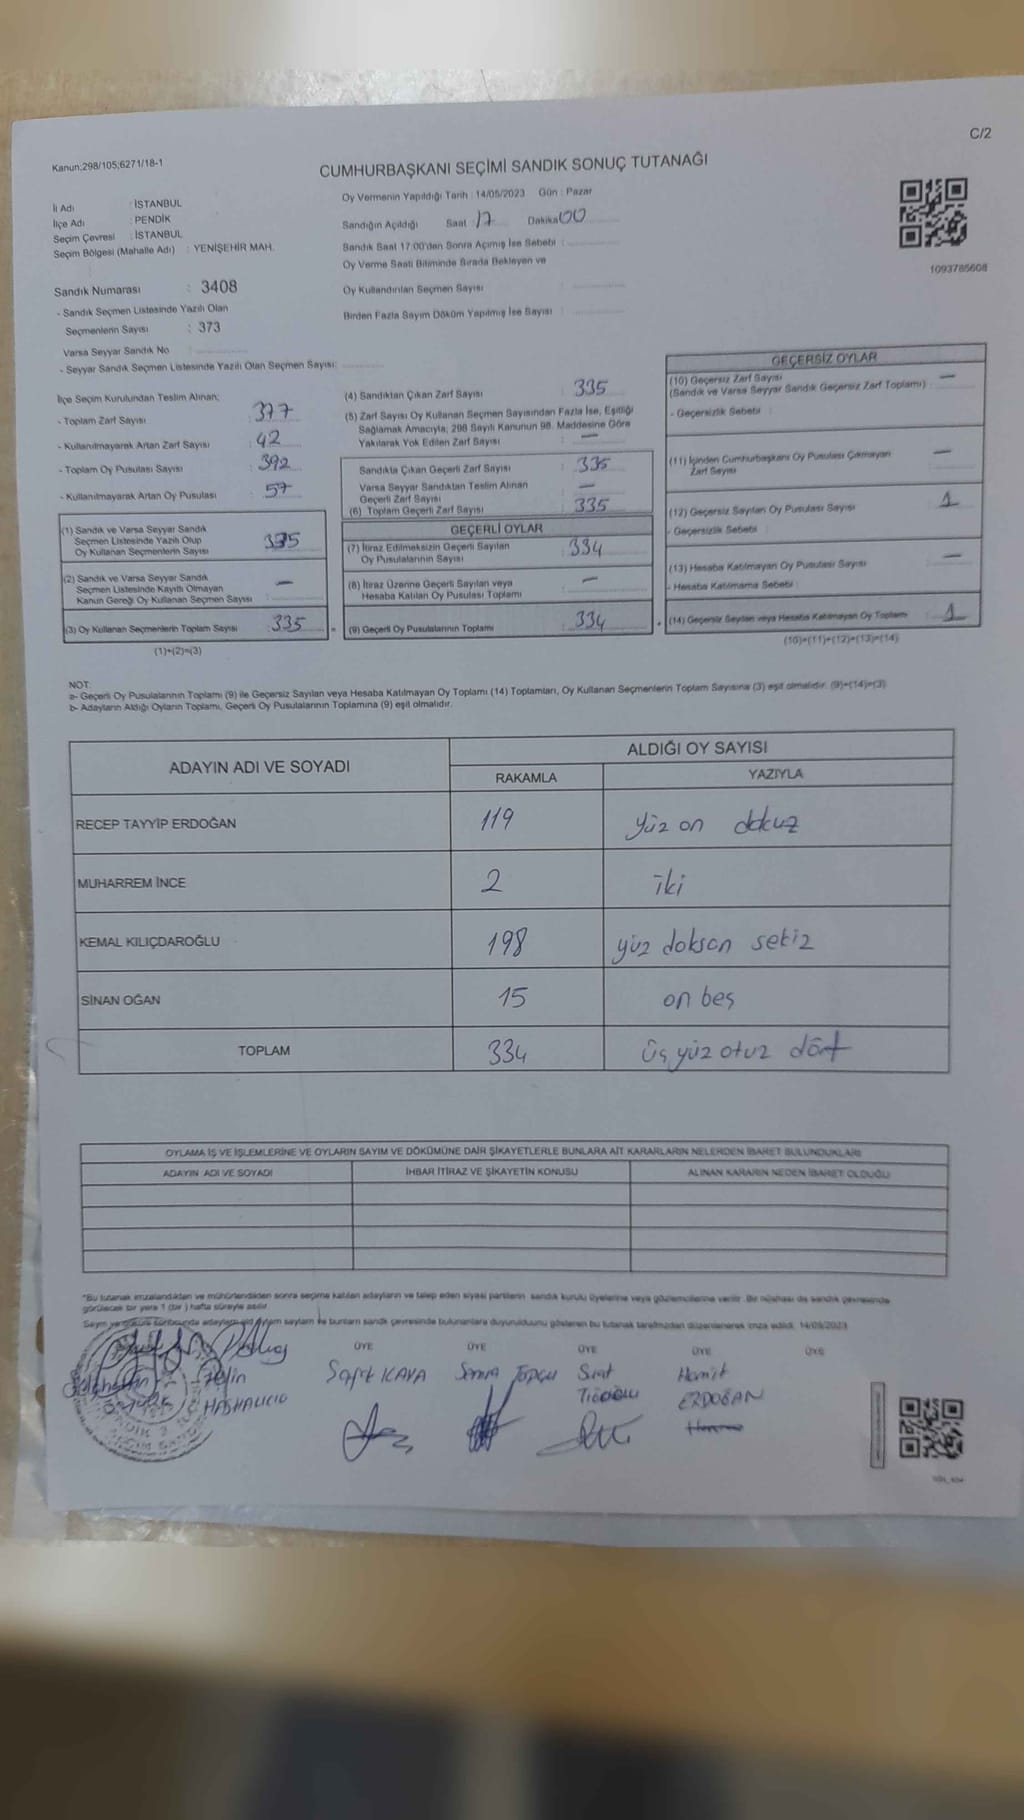 C/2
Kanun;298/105;6271/18-1
CUMHURBAŞKANI SEÇİMİ SANDIK SONUÇ TUTANAĞI
İl Adı : İSTANBUL
İlçe Adı : PENDİK
Seçim Çevresi : İSTANBUL
Seçim Bölgesi (Mahalle Adı) : YENİŞEHİR MAH.
Sandık Numarası : 3408
- Sandık Seçmen Listesinde Yazılı Olan
Seçmenlerin Sayısı : 373
Varsa Seyyar Sandık No :
- Seyyar Sandık Seçmen Listesinde Yazılı Olan Seçmen Sayısı:
Oy Vermenin Yapıldığı Tarih : 14/05/2023 Gün : Pazar
Sandığın Açıldığı Saat : 17 Dakika 00
Sandık Saat 17:00'den Sonra Açımış İse Sebebi :
Oy Verme Saati Bitiminde Sırada Bekleyen ve
Oy Kullandırılan Seçmen Sayısı :
Birden Fazla Sayım Döküm Yapılmış İse Sayısı :
1093785608
İlçe Seçim Kurulundan Teslim Alınan;
- Toplam Zarf Sayısı : 377
- Kullanılmayarak Artan Zarf Sayısı : 42
- Toplam Oy Pusulası Sayısı : 392
- Kullanılmayarak Artan Oy Pusulası : 57
(1) Sandık ve Varsa Seyyar Sandık
Seçmen Listesinde Yazılı Olup
Oy Kullanan Seçmenlerin Sayısı : 335
(2) Sandık ve Varsa Seyyar Sandık
Seçmen Listesinde Kayıtlı Olmayan
Kanun Gereği Oy Kullanan Seçmen Sayısı : —
(3) Oy Kullanan Seçmenlerin Toplam Sayısı : 335
(1)+(2)=(3)
(4) Sandıktan Çıkan Zarf Sayısı : 335
(5) Zarf Sayısı Oy Kullanan Seçmen Sayısından Fazla İse, Eşitliği
Sağlamak Amacıyla; 298 Sayılı Kanunun 98. Maddesine Göre
Yakılarak Yok Edilen Zarf Sayısı : —
Sandıkta Çıkan Geçerli Zarf Sayısı : 335
Varsa Seyyar Sandıktan Teslim Alınan
Geçerli Zarf Sayısı : —
(6) Toplam Geçerli Zarf Sayısı : 335
GEÇERLİ OYLAR
(7) İtiraz Edilmeksizin Geçerli Sayılan
Oy Pusulalarının Sayısı : 334
(8) İtiraz Üzerine Geçerli Sayılan veya
Hesaba Katılan Oy Pusulası Toplamı : —
= (9) Geçerli Oy Pusulalarının Toplamı : 334
GEÇERSİZ OYLAR
(10) Geçersiz Zarf Sayısı : —
(Sandık ve Varsa Seyyar Sandık Geçersiz Zarf Toplamı)
- Geçersizlik Sebebi :
(11) İçinden Cumhurbaşkanı Oy Pusulası Çıkmayan
Zarf Sayısı : —
(12) Geçersiz Sayılan Oy Pusulası Sayısı : 1
- Geçersizlik Sebebi :
(13) Hesaba Katılmayan Oy Pusulası Sayısı : —
- Hesaba Katılmama Sebebi :
+ (14) Geçersiz Sayılan veya Hesaba Katılmayan Oy Toplamı : 1
(10)+(11)+(12)+(13)=(14)
NOT:
a- Geçerli Oy Pusulalarının Toplamı (9) ile Geçersiz Sayılan veya Hesaba Katılmayan Oy Toplamı (14) Toplamları, Oy Kullanan Seçmenlerin Toplam Sayısına (3) eşit olmalıdır. (9)+(14)=(3)
b- Adayların Aldığı Oyların Toplamı, Geçerli Oy Pusulalarının Toplamına (9) eşit olmalıdır.
ADAYIN ADI VE SOYADI ALDIĞI OY SAYISI
RAKAMLA YAZIYLA
RECEP TAYYİP ERDOĞAN 119 yüz on dokuz
MUHARREM İNCE 2 iki
KEMAL KILIÇDAROĞLU 198 yüz doksan sekiz
SİNAN OĞAN 15 on beş
TOPLAM 334 üç yüz otuz dört
OYLAMA İŞ VE İŞLEMLERİNE VE OYLARIN SAYIM VE DÖKÜMÜNE DAİR ŞİKAYETLERLE BUNLARA AİT KARARLARIN NELERDEN İBARET BULUNDUKLARI
ADAYIN ADI VE SOYADI İHBAR İTİRAZ VE ŞİKAYETİN KONUSU ALINAN KARARIN NEDEN İBARET OLDUĞU
*Bu tutanak imzalandıktan ve mühürlendikten sonra seçime katılan adayların ve talep eden siyasi partilerin sandık kurulu üyelerine veya gözlemcilerine verilir. Bir nüshası da sandık çevresinde
görülecek bir yere 1 (bir) hafta süreyle asılır.
14/05/2023
ÜYE ÜYE ÜYE ÜYE ÜYE
KAYA TOPÇU Suat Hamit
Pelin ERDOĞAN